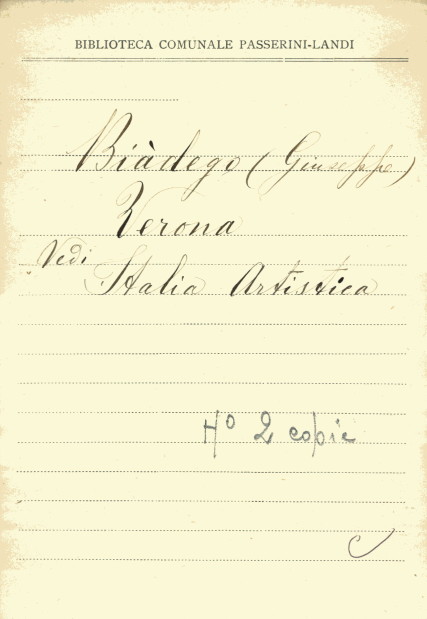 BIBLIOTECA COMUNALE PASSERINI-LANDI
Biàdego (Giuseppe)
Verona
Vedi
Italia Artistica
2 copie